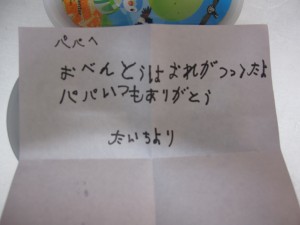 パパへ
おべんとうはおれがつつうたよ
パパいつもありがとう
たいちより